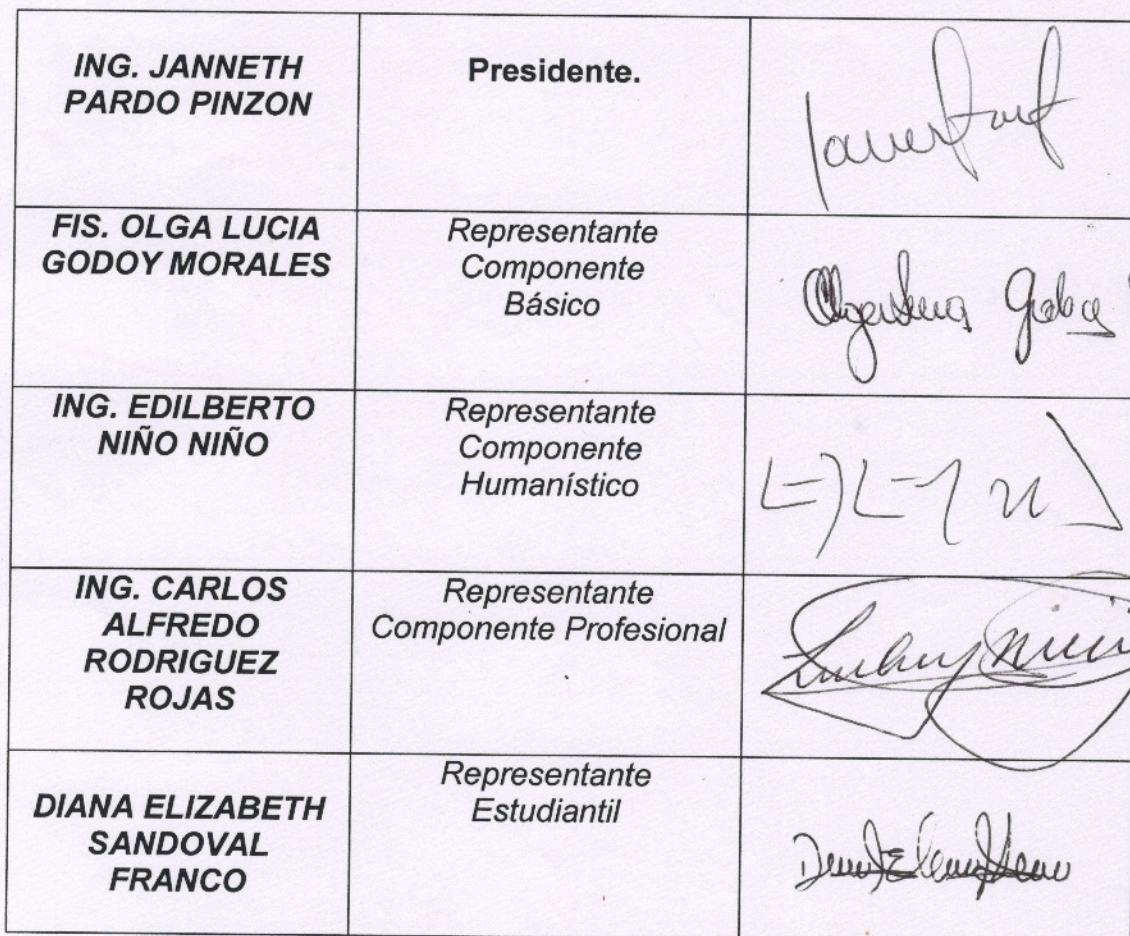 ING. JANNETH
PARDO PINZON
Presidente.
FIS. OLGA LUCIA
GODOY MORALES
Representante
Componente
Básico
ING. EDILBERTO
NIÑO NIÑO
Representante
Componente
Humanístico
ING. CARLOS
ALFREDO
RODRIGUEZ
ROJAS
Representante
Componente Profesional
DIANA ELIZABETH
SANDOVAL
FRANCO
Representante
Estudiantil